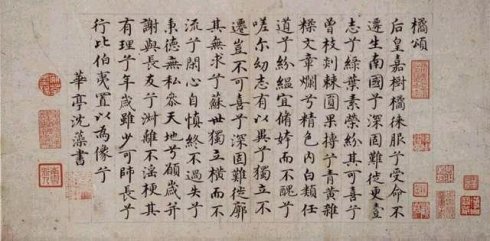 橘頌
后皇嘉樹橘徠服兮受命不
遷生南國兮深固難徙更壹
志兮綠葉素榮紛其可喜兮
曾枝剡棘圓果摶兮青黃雜
糅文章爛兮精色內白類任
道兮紛緼宜脩姱而不醜兮
嗟尔幼志有以異兮獨立不
遷豈不可喜兮深固難徙廓
其無求兮蘇世獨立橫而不
流兮閉心自慎終不過失兮
秉德無私參天地兮願歲并
謝與長友兮淑離不淫梗其
有理兮年歲雖少可師長兮
行比伯夷置以為像兮
華亭沈藻書